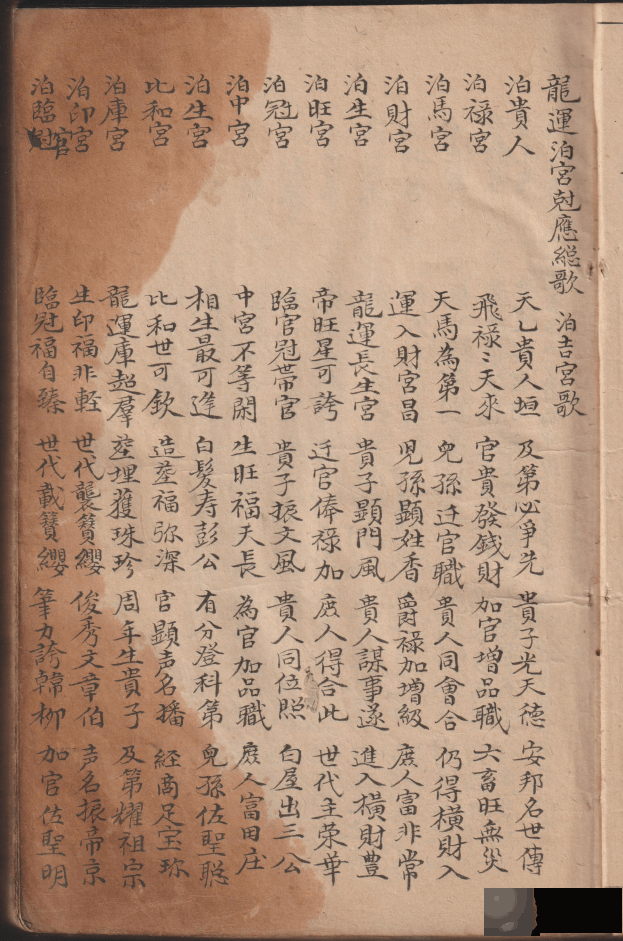 龍運泊宮尅應總歌 泊吉宮歌
泊貴人 天乙貴人垣 及第必爭先 貴子光天德 安邦名世傳
泊祿宮 飛祿〻天來 官貴發錢財 加官增品職 六畜旺無災
泊馬宮 天馬為第一 兒孫迁官職 貴人同會合 仍得横財入
泊財宮 運入財宮昌 児孫顕姓香 爵祿加增級 庶人富非常
泊生宮 龍運長生宮 貴子顕門風 貴人謀事遂 進入橫財豊
泊旺宮 帝旺星可誇 迁官俸祿加 庶人得合此 世代主荣華
泊冠宮 臨官冠帯官 貴子振文風 貴人同位照 白屋出三公
泊中宮 中宮不等閑 生旺福天長 為官加品職 庶人富田庄
泊生宮 相生最可逢 白髮寿彭公 有分登科第 兒孫佐聖聡
比和宮 比和世可欽 造塟福弥深 官顕声名播 経商足宝珎
泊庫宮 龍運庫超羣 塟埋獲珠珍 周年生貴子 及第耀祖宗
泊印宮 生印福非軽 世代襲簪纓 俊秀文章伯 声名振帝京
泊臨冠宮 臨冠福自臻 世代載簪纓 筆力誇韓柳 加官佐聖明